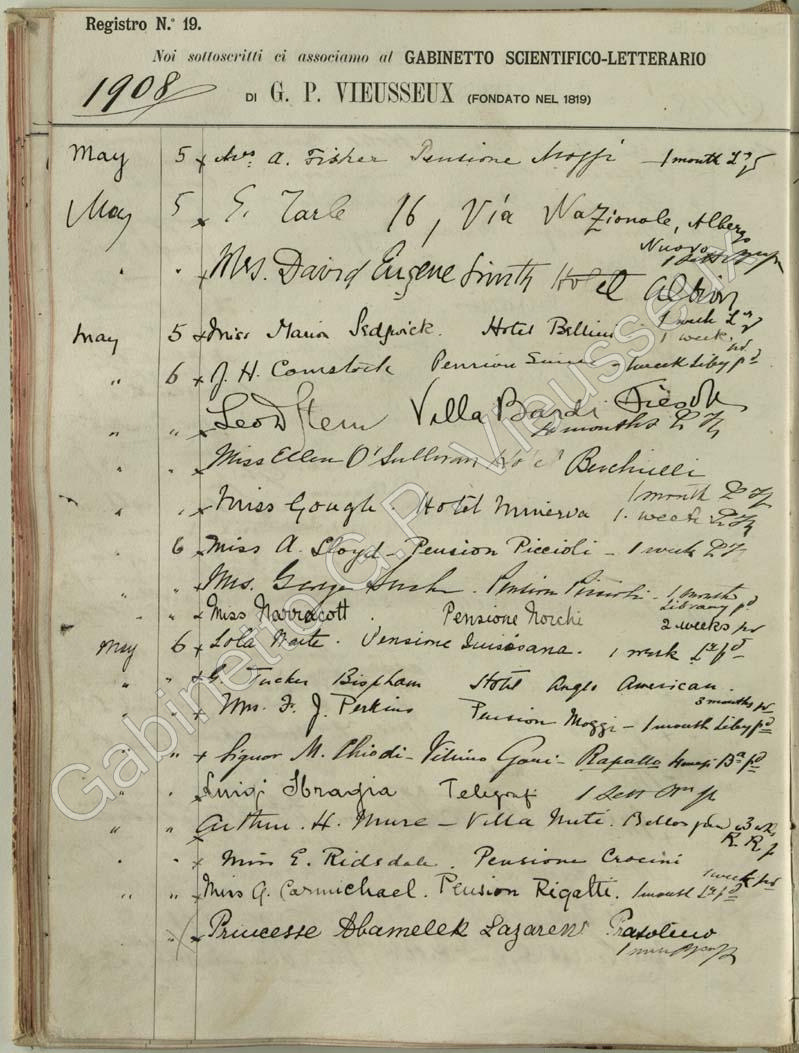 Registro N.° 19.
Noi sottoscritti ci associamo al GABINETTO SCIENTIFICO-LETTERARIO
1908 DI G. P. VIEUSSEUX (FONDATO NEL 1819)
May 5 x Mrs A. Fisher Pensione Moggi 1 month
May 5 x E. Tarle 16, Via Nazionale, Albergo
Nuovo
" " x Mrs. David Eugene Smith Hotel Albion
May 5 x Miss Marion Sedgwick. Hotel Bellini 1 month
1 week
" 6 x J. H. Comstock Pension Suisse 1 week Liby pd
" " x Leo D Stern Villa Bardi Fiesole
months
" " Miss Ellen O'Sullivan Hotel
1 month
" " x Miss Gough. Hotel Minerva 1. week
" 6 x Miss A. Lloyd - Pension Piccioli - 1 week
" " x Mrs. George Pension Piccioli - 1 month
Library pd
" " x Miss Narracott. Pensione Norchi 2 weeks pd
May 6 x Lola Waite. Pensione Quisisana. 1 week
" " x G. Tucker Bispham Hotel Anglo American.
3 months pd
" " x Mrs. F. J. Perkins Pension Moggi - 1 month Liby pd
" " x Signor M. Chiodi - Rapallo
" " Luigi Telegrafi 1 Sett
" " Arthur. H. Villa
R. R.
" " x Miss E. Ridsdale. Pensione Crocini
1 week pd
" " x Miss G. Carmichael. Pension Rigatti. 1 month
" x Princesse Abamelek Lazarew Pratolino
Gabinetto G.P. Vieusseux